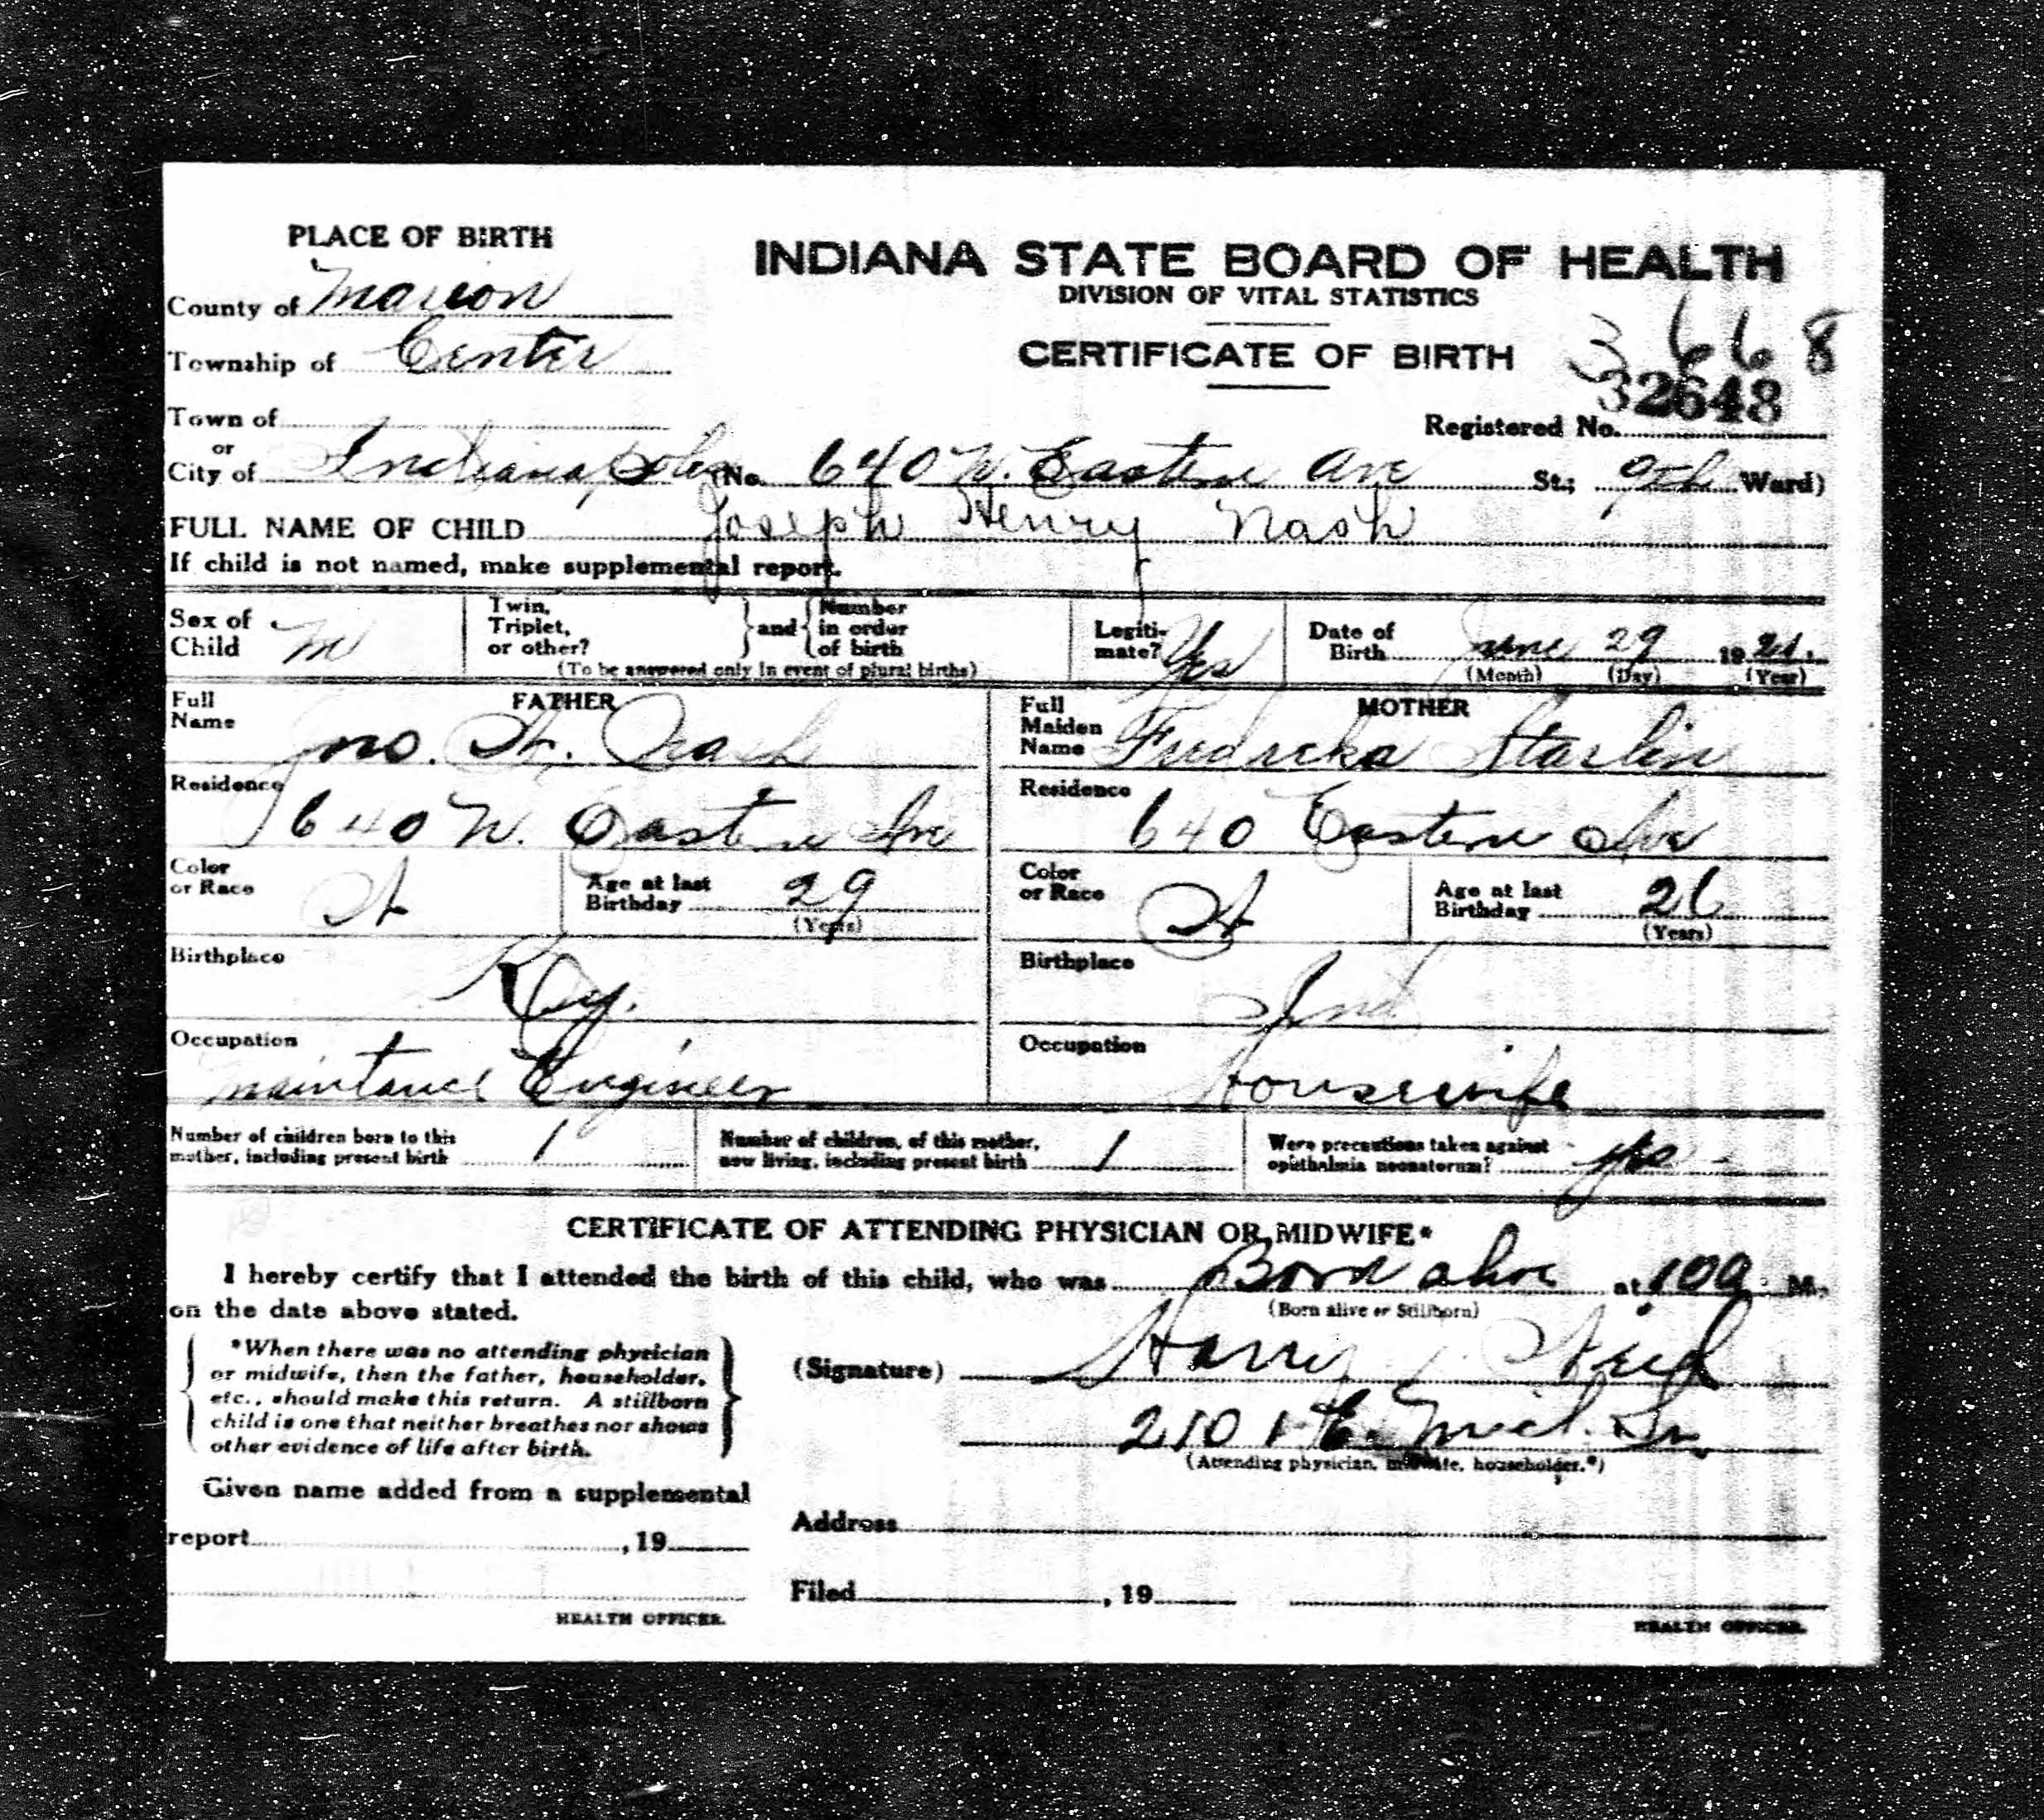 PLACE OF BIRTH
INDIANA STATE BOARD OF HEALTH
DIVISION OF VITAL STATISTICS
CERTIFICATE OF BIRTH
County of Marion
Township of Center
3668
32648
Registered No.
Town of
or
City of Indianapolis (No. 640 N. Eastern Ave St.; 9th Ward)
FULL NAME OF CHILD Joseph Henry Nash
If child is not named, make supplemental report.
Sex of Child M
Twin, Triplet, or other? and Number in order of birth
(To be answered only in event of plural births)
Legiti-mate? Yes
Date of Birth June 29 1921.
(Month) (Day) (Year)
FATHER
Full Name Jno. Nash
MOTHER
Full Maiden Name Fredreka Starlin
Residence 640 N. Eastern Ave
Residence 640 Eastern Ave
Color or Race
Age at last Birthday 29
(Years)
Color or Race
Age at last Birthday 26
(Years)
Birthplace Ky.
Birthplace Ind
Occupation maintance Engineer
Occupation Housewife
Number of children born to this mother, including present birth 1
Number of children, of this mother, now living, including present birth 1
Were precautions taken against ophthalmia neonatorum? yes
CERTIFICATE OF ATTENDING PHYSICIAN OR MIDWIFE*
I hereby certify that I attended the birth of this child, who was Born alive at 10a M.
(Born alive or Stillborn)
on the date above stated.
*When there was no attending physician
or midwife, then the father, householder,
etc., should make this return. A stillborn
child is one that neither breathes nor shows
other evidence of life after birth.
(Signature) Harry
2101 E. Mich.
(Attending physician, midwife, householder.*)
Given name added from a supplemental
report , 19
Address
Filed , 19
HEALTH OFFICER.
HEALTH OFFICER.